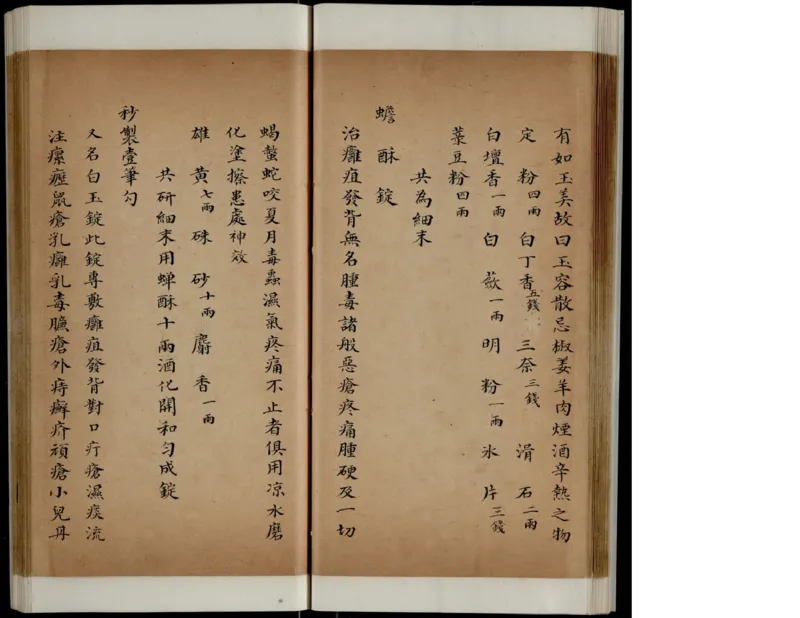 有如玉美故曰玉容散忌椒姜羊肉煙酒辛熱之物
定粉四兩 白丁香五錢 三奈三錢 滑石二兩
白壇香一兩 白蘞一兩 明粉一兩 氷片三錢
菉豆粉四兩
共為細末
蟾酥錠
治癰疽發背無名腫毒諸般惡瘡疼痛腫硬及一切
蝎螫蛇咬夏月毒蟲濕氣疼痛不止者俱用凉水磨
化塗擦患處神效
雄黄七兩 硃砂十兩 麝香一兩
共研細末用蟬酥十兩酒化開和勻成錠
秒製壹筆勾
又名白玉錠此錠專敷癰疽發背對口疔瘡濕痰流
注瘰癧鼠瘡乳癰乳毒臁瘡外痔癬疥頑瘡小兒丹